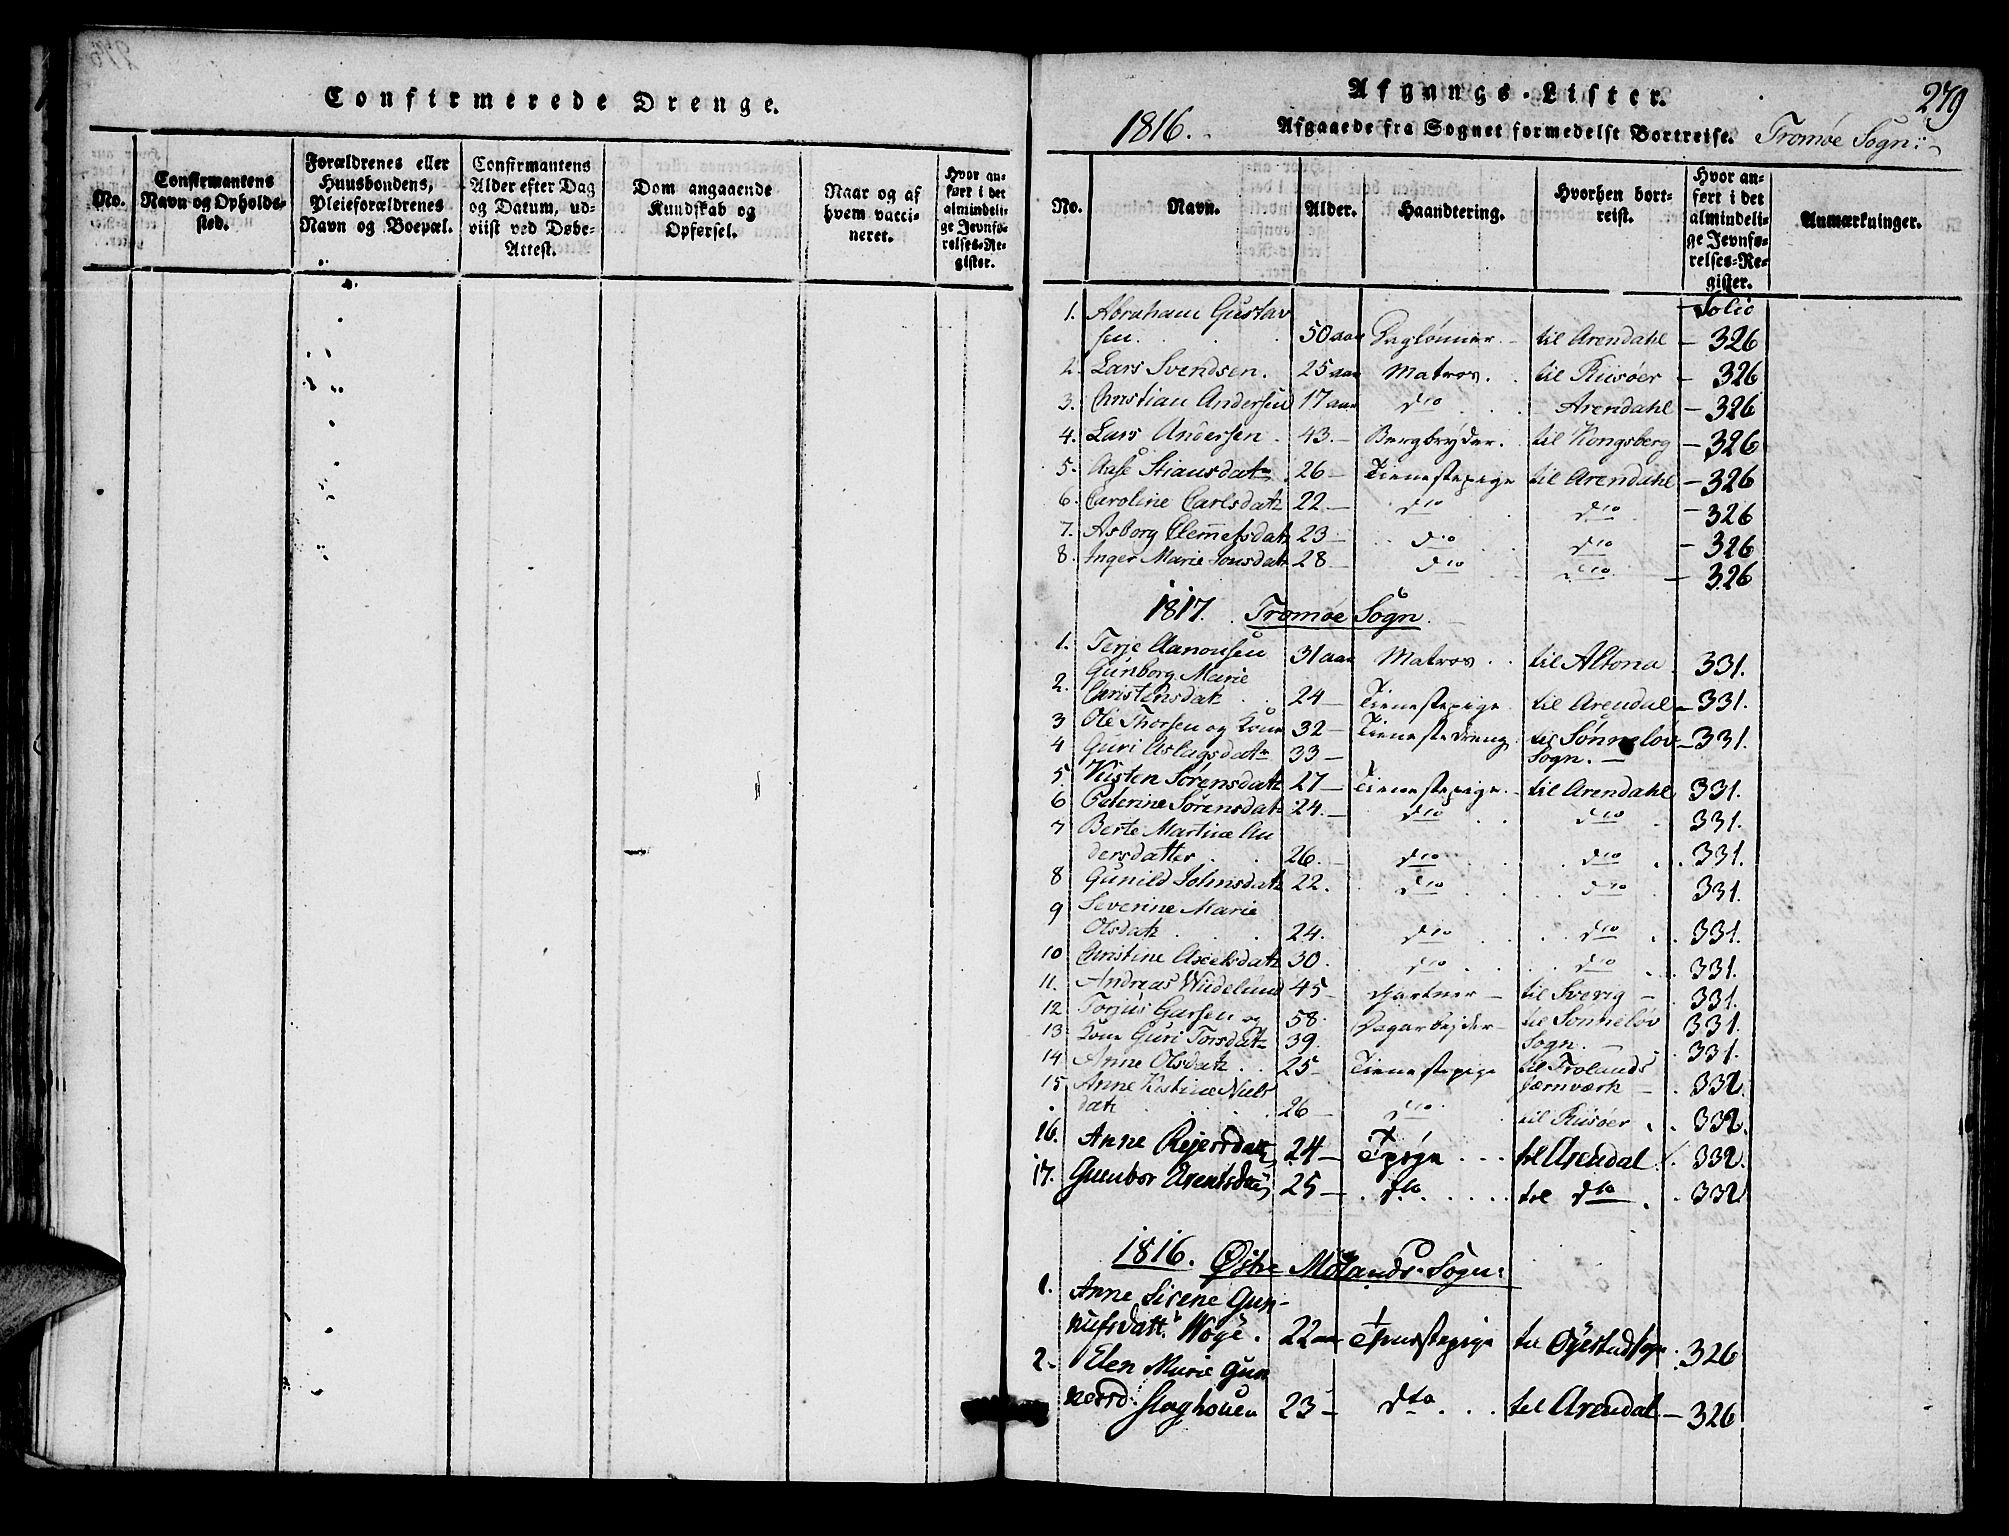 Confirmerede Drenge.
No.
Confirmantens Navn og Opholds-sted.
Forældrenes eller Huusbondens, Pleieforældrenes Navn og Boepæl.
Confirmantens Alder efter Dag og Datum, ud-viist ved Døbe-Attest.
Dom angaaende Kundskab og Opførsel.
Naar og af hvem vacci-neret.
Hvor an-ført i det almindeli-ge Jevnfø-relses-Re-gister.
279
Afgangs-Lister.
1816. Afgaaede fra Sognet formedelst Bortreise. Tromøe Sogn:
No. Navn. Alder. Haandtering. Hvorhen bort-reist. Hvor an-ført i det almindeli-ge Jevnfø-relses-Re-gister. Anmærkninger.
Folio
1. Abraham Gustav
sen. 50 aar Daglønner - til Arendahl - 326
2. Lars Svendsen. 25 aar Matros. til Riisøer - 326
3. Christian Andersen 17 aar dto Arendahl - 326
4. Lars Andersen. 43. - Bergbryder. til Kongsberg - 326
5. Aase Stiansdatr 26 - Tienestepige til Arendahl - 326
6. Caroline Carlsdatr 22 - dto dto - 326
7. Asborg Clemetsdatr 23 - dto dto - 326
8. Inger Marie Jonsdatr 28 - dto dto - 326
1817. Tromøe Sogn.
1. Terje Aanonsen 31 aar Matros. til Altona. 331.
2. Gunborg Marie
Christensdatr 24 - Tienestepige til Arendal - 331.
3 Ole Thorsen og Kone 32 - Tienestedreng til Sønneløv - 331.
4 Guri Aslagsdatr 33 - Sogn. -
5. Kisten Sørensdatr 27 - Tienestepige - til Arendahl 331.
6 Peterine Sørensdatr 24. - dto dto 331.
7 Berte Martine An
dersdatter 26. - dto dto 331.
8 Gunild Johnsdatr 22. dto dto 331.
9 Severine Marie
Olsdatr 24. dto dto 331.
10 Christine Axelsdatr 30. dto dto 331.
11. Andreas Wiidelund 45 - Gartner - til Sverig - 331.
12 Torjus Garsen og 58. Dagarbejder - til Sønneløv 331.
13 Kone Guri Torsdatr 39. Sogn. - 331.
14 Anne Olsdatr 25 - Tienestepige til Frolands
Jærnværk - 332.
15 Anne Kistine Niels
datr 26 - dto til Riisøer 332.
16. Anne Rejersdatr 24 - Tpige til Arendal 332.
17. Gunbor Arentsdatr 25 - dto til dto 332
1816. Østre Molands-Sogn:
1. Anne Sirene Gun-
nufsdatt. 22 aar Tienestepige til Øyestad sogn 326
2 - Elen Marie Gun
nersd. 23 - dto til Arendal - 326